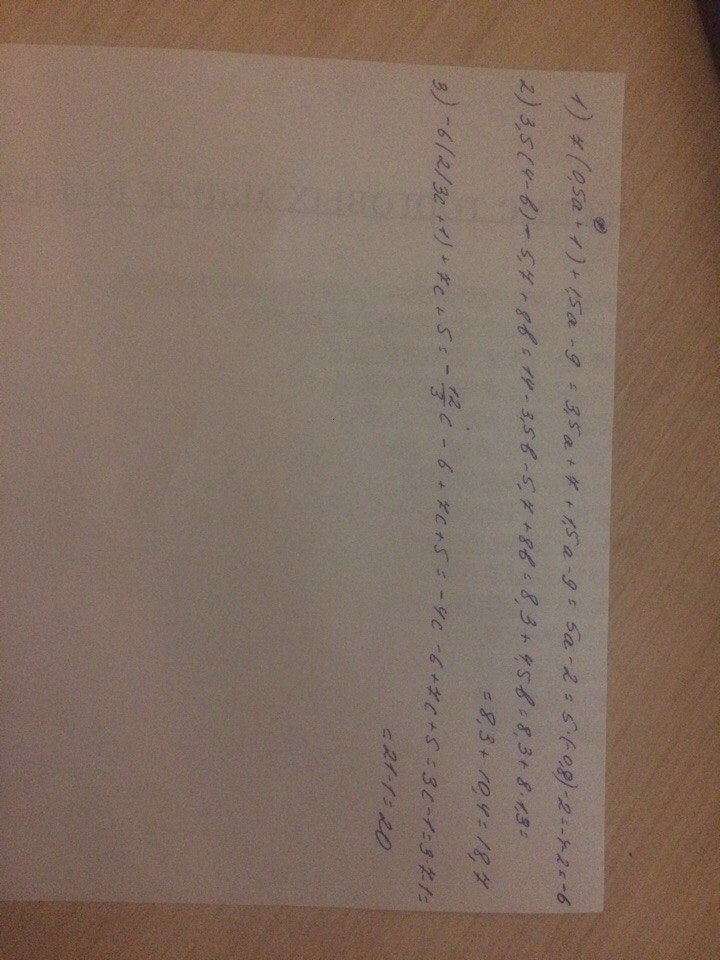 1) 7(0,5a+1)+1,5a-9=3,5a+7+1,5a-9=5a-2=5·(-0,8)-2=-4-2=-6
2) 3,5(4-b)-5,7+8b=14-3,5b-5,7+8b=8,3+4,5b=8,3+8·1,3=
=8,3+10,4=18,7
3) -6(2/3c+1)+7c+5=-12/3c-6+7c+5=-4c-6+7c+5=3c-1=3·7-1=
=21-1=20